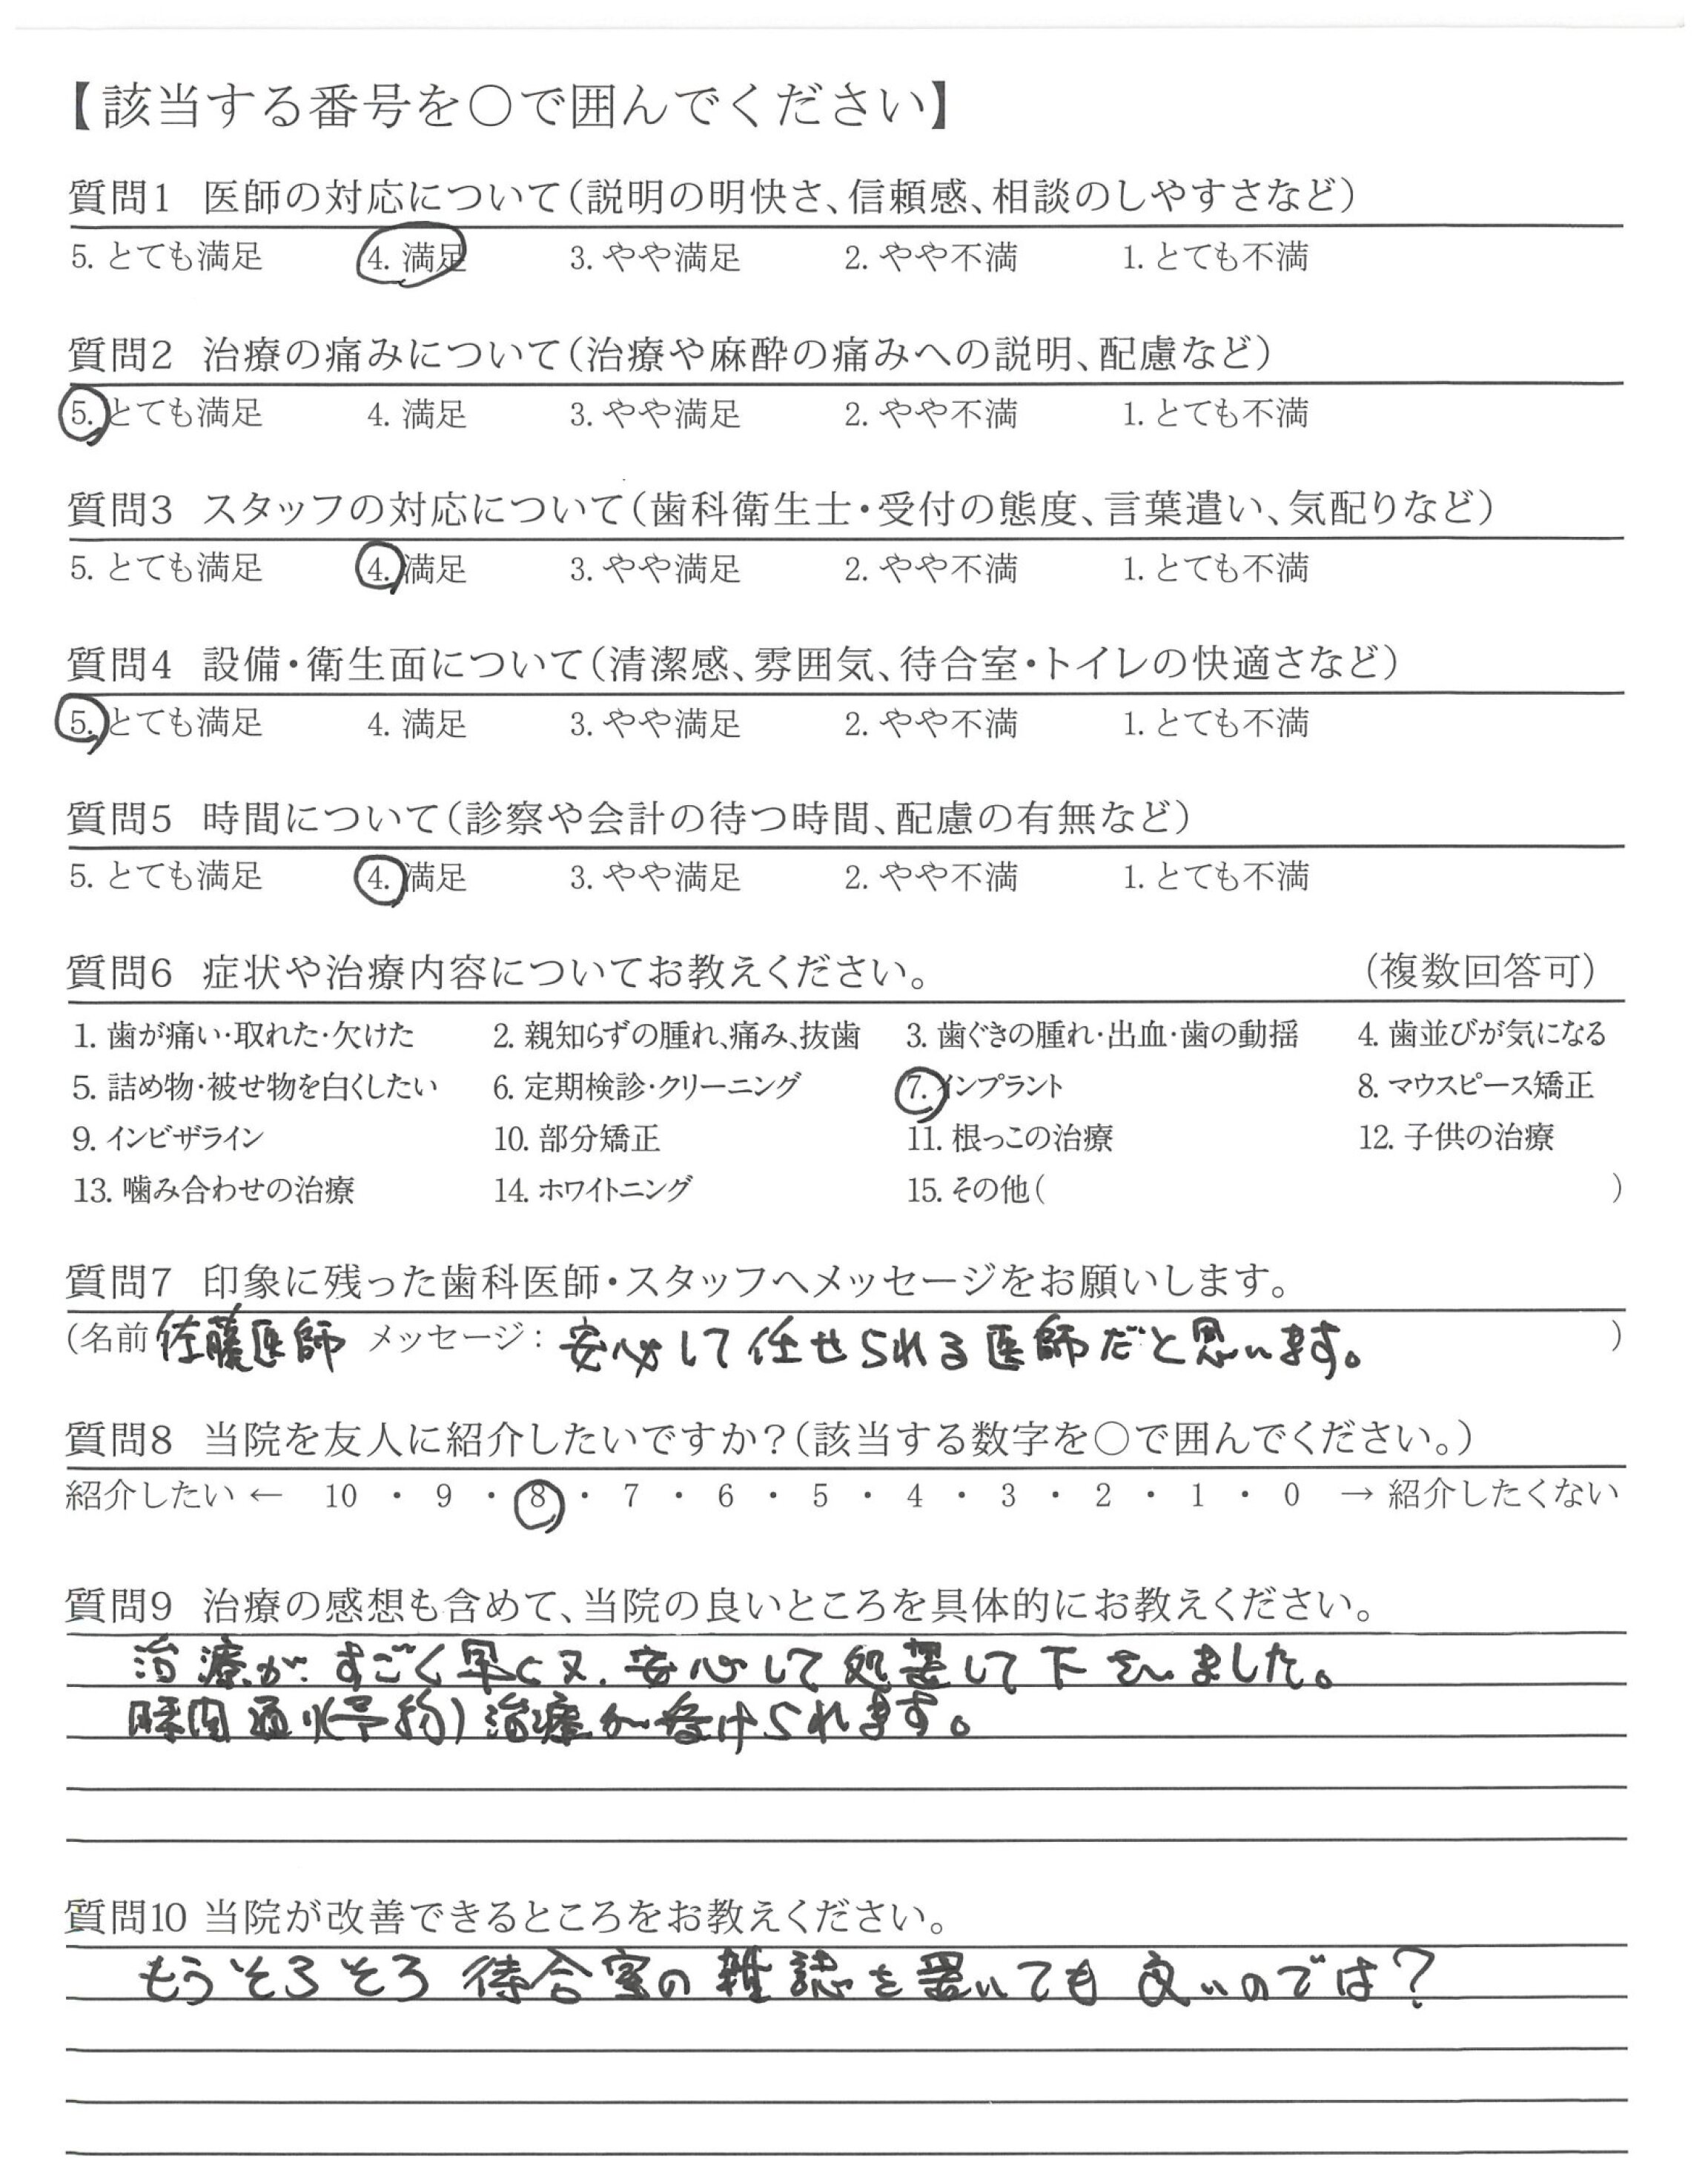 【該当する番号を○で囲んでください】
質問1 医師の対応について(説明の明快さ、信頼感、相談のしやすさなど)
5. とても満足 4. 満足 3. やや満足 2. やや不満 1. とても不満
質問2 治療の痛みについて(治療や麻酔の痛みへの説明、配慮など)
5. とても満足 4. 満足 3. やや満足 2. やや不満 1. とても不満
質問3 スタッフの対応について(歯科衛生士・受付の態度、言葉遣い、気配りなど)
5. とても満足 4. 満足 3. やや満足 2. やや不満 1. とても不満
質問4 設備・衛生面について(清潔感、雰囲気、待合室・トイレの快適さなど)
5. とても満足 4. 満足 3. やや満足 2. やや不満 1. とても不満
質問5 時間について(診察や会計の待つ時間、配慮の有無など)
5. とても満足 4. 満足 3. やや満足 2. やや不満 1. とても不満
質問6 症状や治療内容についてお教えください。 (複数回答可)
1. 歯が痛い・取れた・欠けた 2. 親知らずの腫れ、痛み、抜歯 3. 歯ぐきの腫れ・出血・歯の動揺 4. 歯並びが気になる
5. 詰め物・被せ物を白くしたい 6. 定期検診・クリーニング 7. インプラント 8. マウスピース矯正
9. インビザライン 10. 部分矯正 11. 根っこの治療 12. 子供の治療
13. 噛み合わせの治療 14. ホワイトニング 15. その他( )
質問7 印象に残った歯科医師・スタッフへメッセージをお願いします。
(名前 佐藤医師 メッセージ: 安心して任せられる医師だと思います。 )
質問8 当院を友人に紹介したいですか?(該当する数字を○で囲んでください。)
紹介したい ← 10 ・ 9 ・ 8 ・ 7 ・ 6 ・ 5 ・ 4 ・ 3 ・ 2 ・ 1 ・ 0 → 紹介したくない
質問9 治療の感想も含めて、当院の良いところを具体的にお教えください。
治療がすごく早く又、安心して処置して下さいました。
時間通り(予約)治療が受けられます。
質問10 当院が改善できるところをお教えください。
もうそろそろ待合室の雑誌を置いても良いのでは?